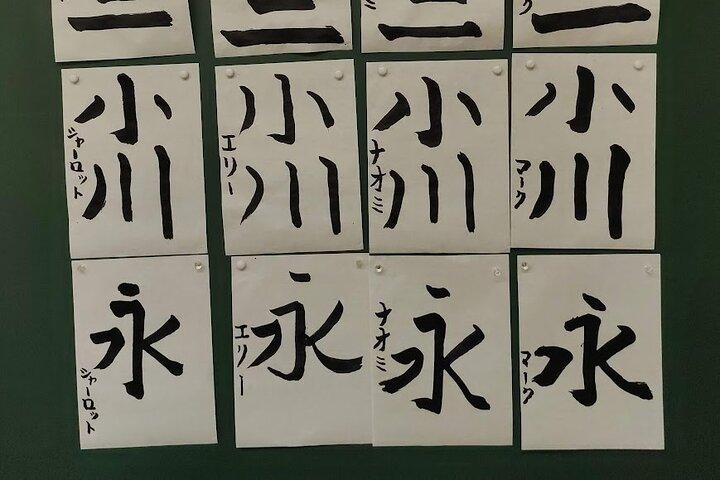 小川
シャーロット
小川
エリー
小川
ナオミ
小川
マーク
永
シャーロット
永
エリー
永
ナオミ
永
マーク